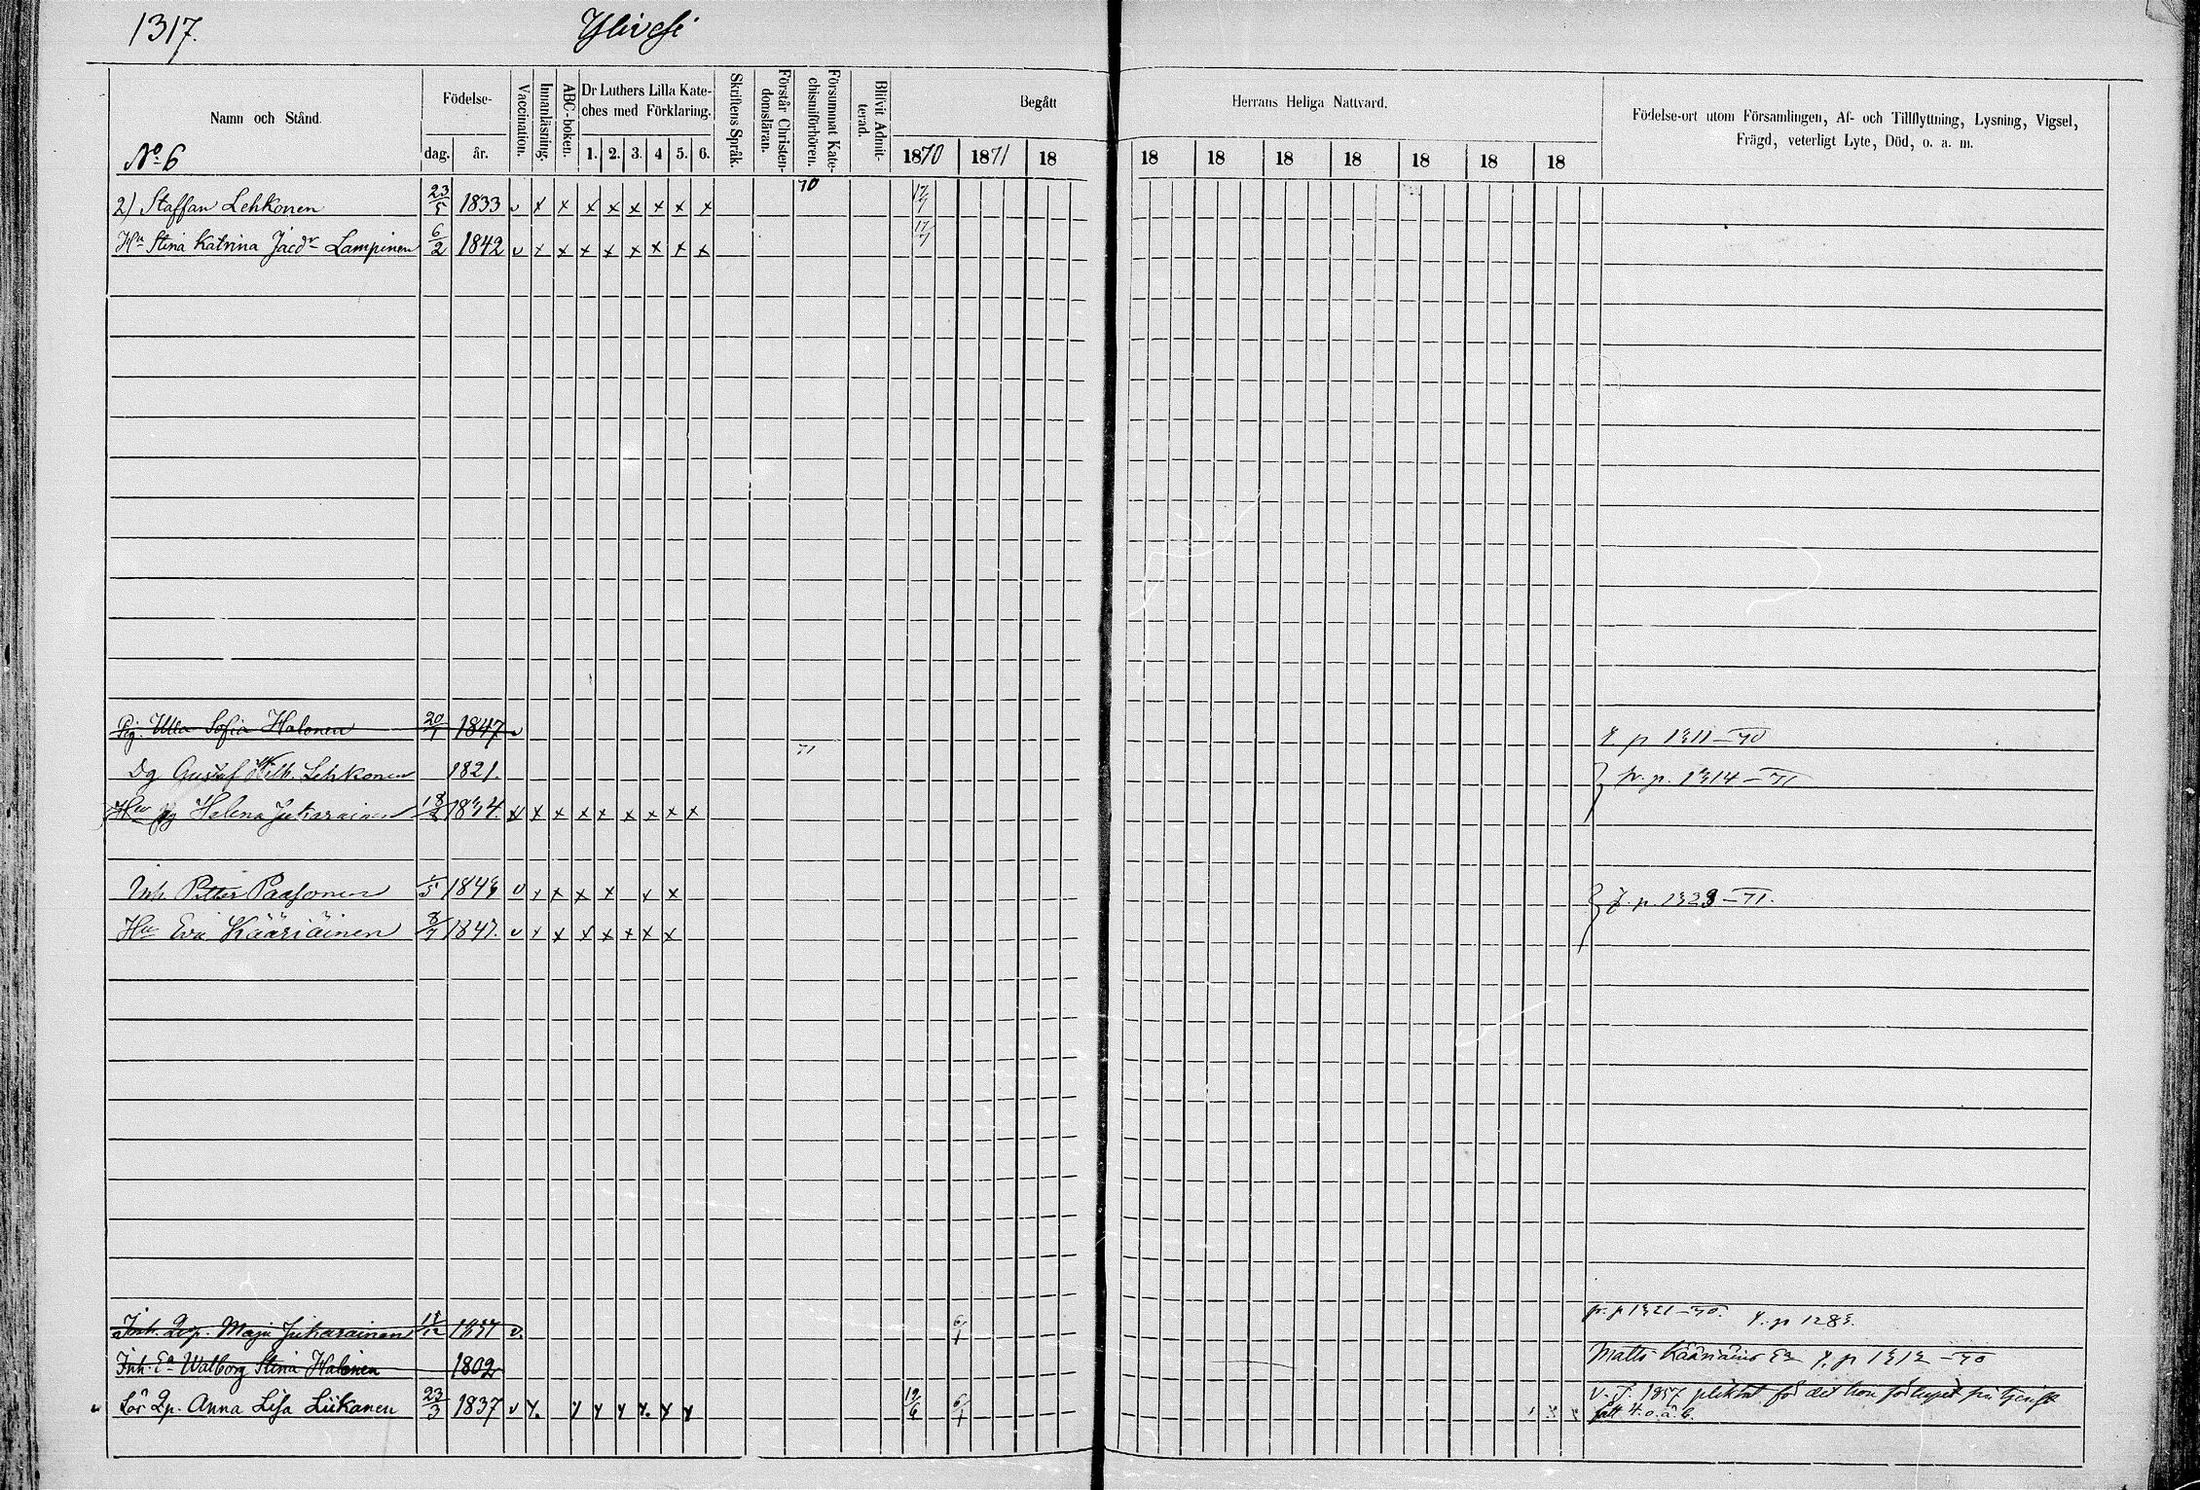 1317.
Ylivesi
Namn och Stånd.
No 6
Födelse-
dag. år.
Vaccination.
Innanläsning.
ABC-boken.
Dr Luthers Lilla Kate-
ches med Förklaring.
1. 2. 3. 4 5. 6.
Skriftens Språk.
Förstår Christen-
domsläran.
Försummat Kate-
chismiförhören.
Blifvit Admit-
terad.
Begått
Herrans Heliga Nattvard.
1870 1871 18 18 18 18 18 18 18 18
Födelse-ort utom Församlingen, Af- och Tillflyttning, Lysning, Vigsel,
Frägd, veterligt Lyte, Död, o. a. m.
70
2) Staffan Lehkonen 23/5 1833 v x x x x x x x x 17/7
Hu Stina Katrina Jacdr Lampinen 6/2 1842 v x x x x x x x x 17/7
Pig. Ulla Sofia Halonen 20/1 1847 v p 1311-70
71
Dg Gustaf Wilh. Lehkonen 1821. fr. p. 1314-71
Hu Helena Jukarainen 18/ 1834. v x x x x x x x x
Inh. Petter Paasonen 1/5 184 v x x x x x x p. 132 -71.
Hu Eva Kääriäinen 8/7 1847. v x x x x x x x
Inh. Qvp. Maja Jukarainen /12 18 7 v. 6/1 fr. p 1321-70. p 128
Inh. Ea Walborg Stina Halonen 1802 Matts Kääriäins Ea p 131 -70
Lös Qp. Anna Lisa Liikanen 23/3 1837 v x. x x x x. x x 12/6 6/1 1857 pliktat för det hon förlupit
fått 4. o. å. b.